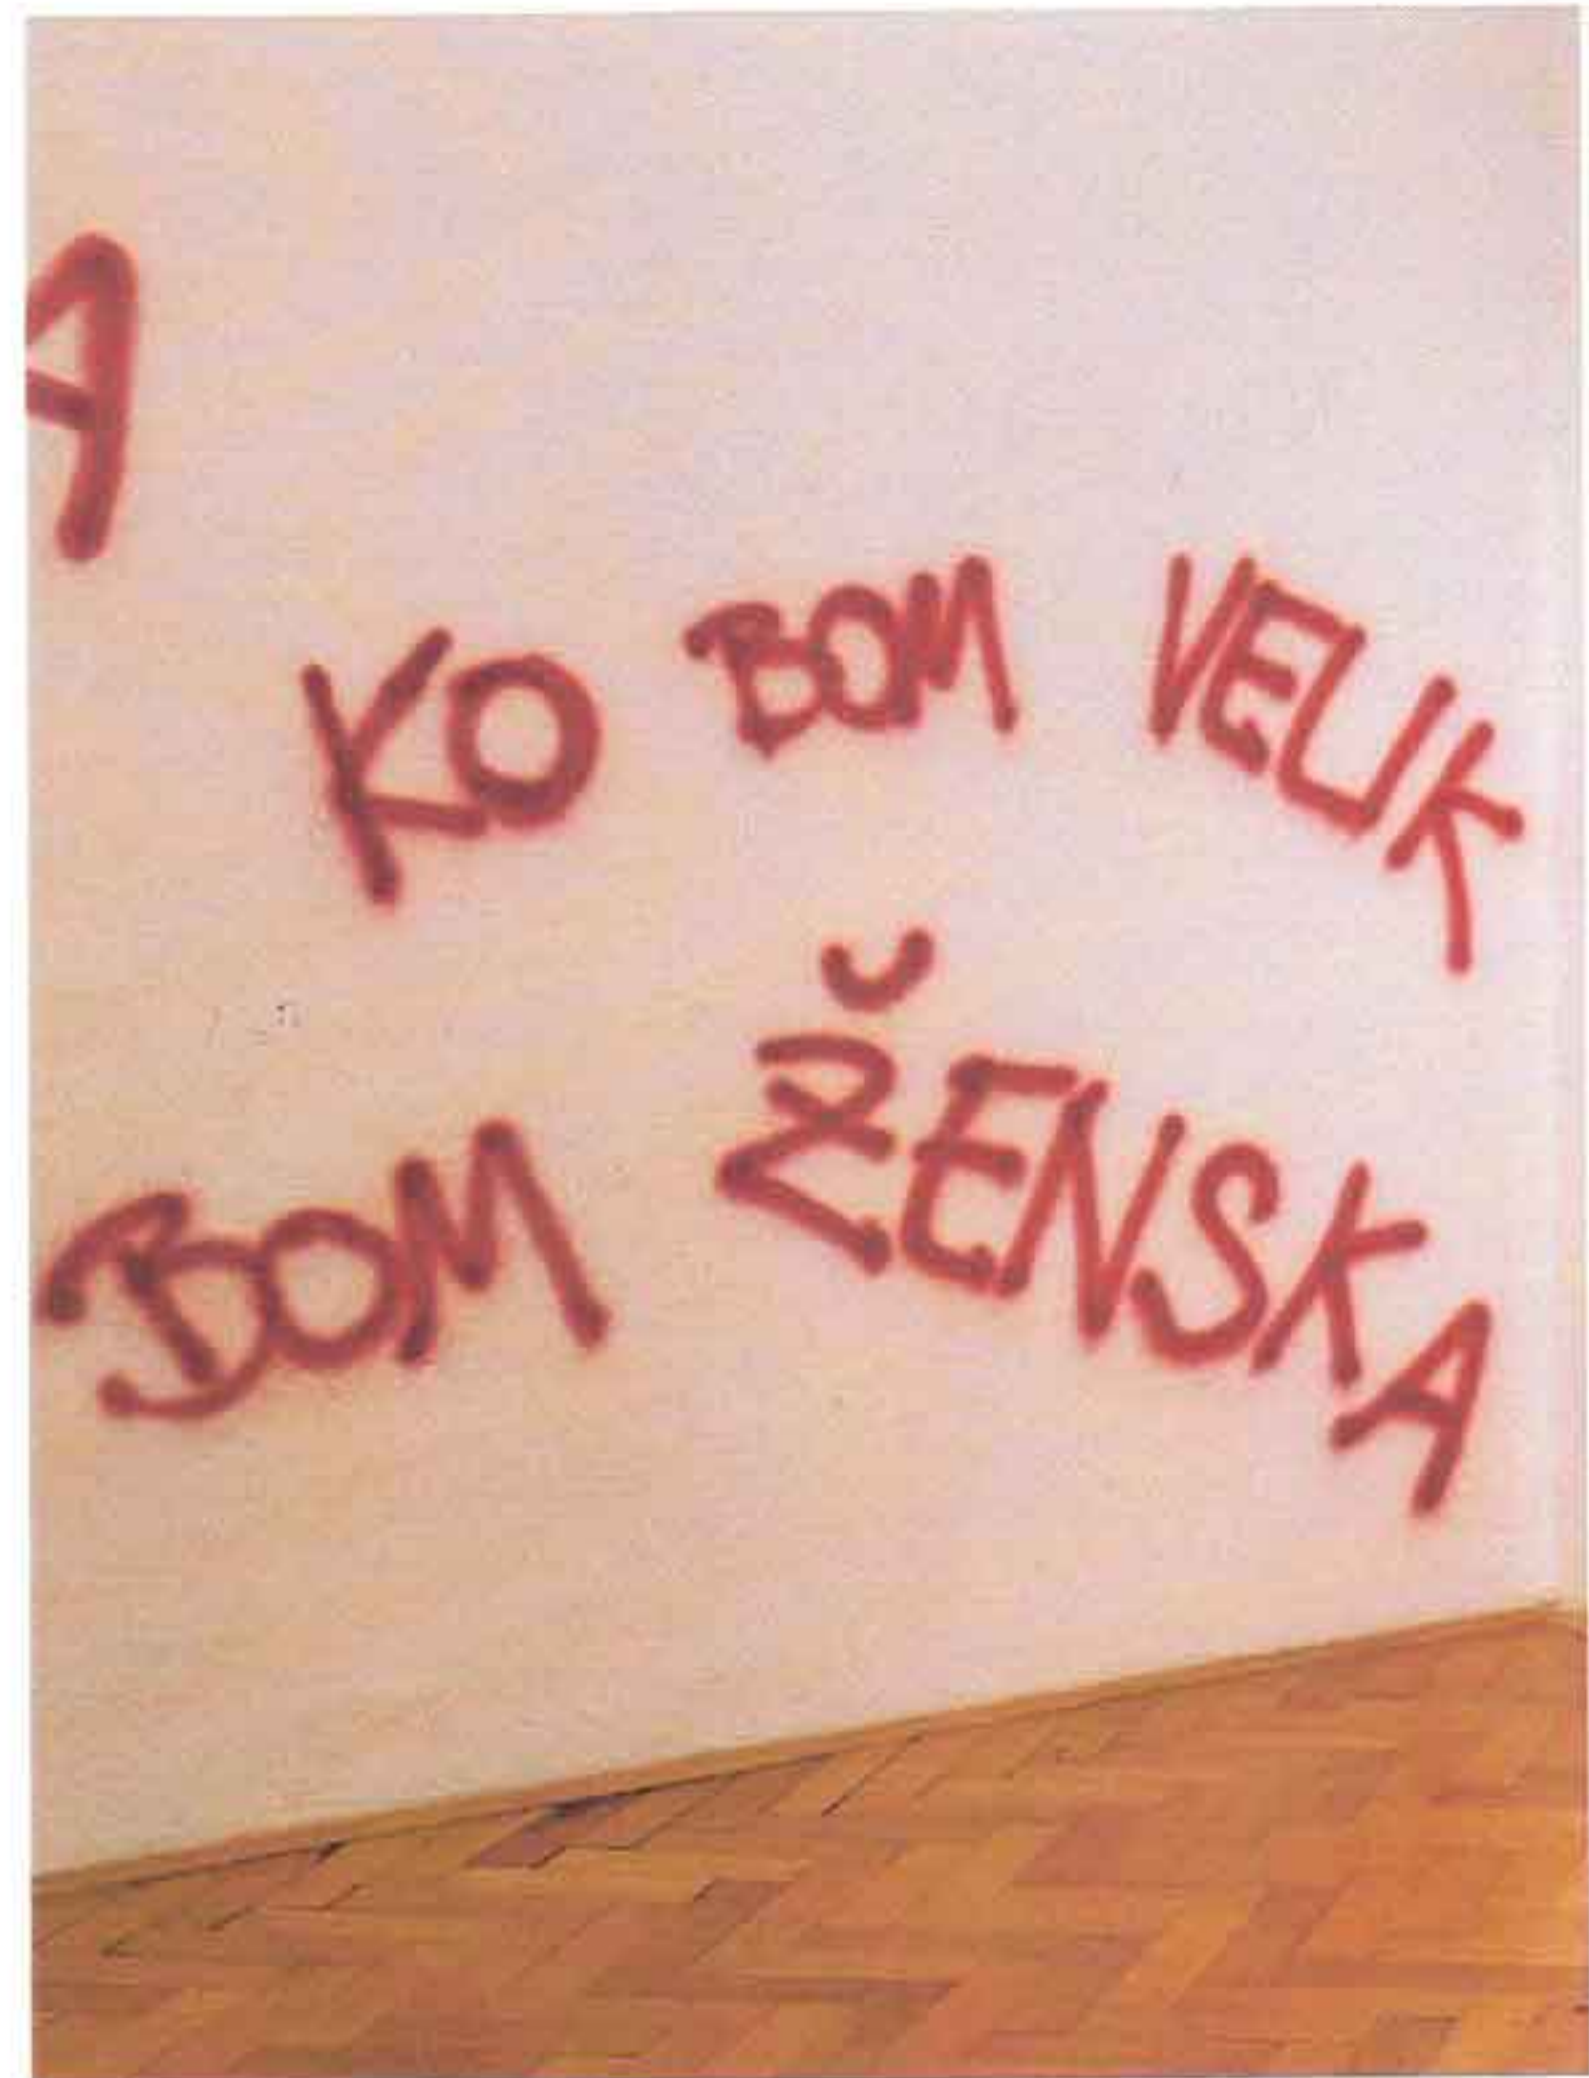 A
KO BOM VELIK
BOM ŽENSKA